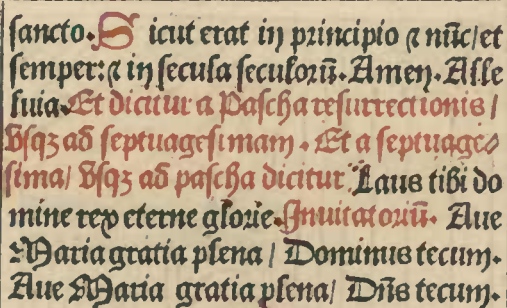 sancto. Sicut erat in principio ⁊ nūc/et
semper: ⁊ in secula seculorū. Amen. Alle
luia. Et dicitur a Pascha resurrectionis /
Vsqꝫ ad septuagesimam. Et a septuage⸗
sima/ Vsqꝫ ad pascha dicitur. Laus tibi do
mine rex eterne glorie. Inuitatoriū. Aue
Maria gratia plena / Dominus tecum.
Aue Maria gratia plena/ Dn̄s tecum.